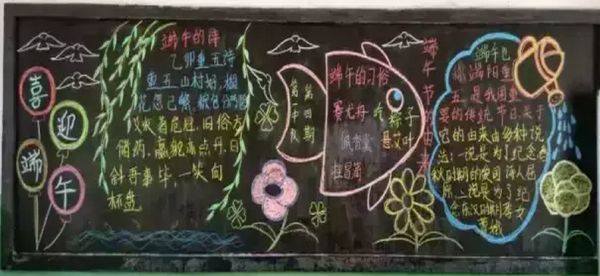 喜
迎
端
午
端午的诗
乙卯重五诗
重五山村好,榴
花忽已繁,粽包分两
艾束著危冠。旧俗方
储药,羸躯亦点丹。日
斜吾事毕,一笑向
杯盘
第一期
端午的习俗
赛龙舟
吃粽子
佩香囊
悬艾叶
拴冒蒲
端午节的由来
端午也
称端阳重
五是我国重
要的传统节日,关于
它的由来由多种说
法:一说是为了纪念春
秋时期的爱国诗人屈
原,二说是为了纪
念东汉的期孝女
曹娥